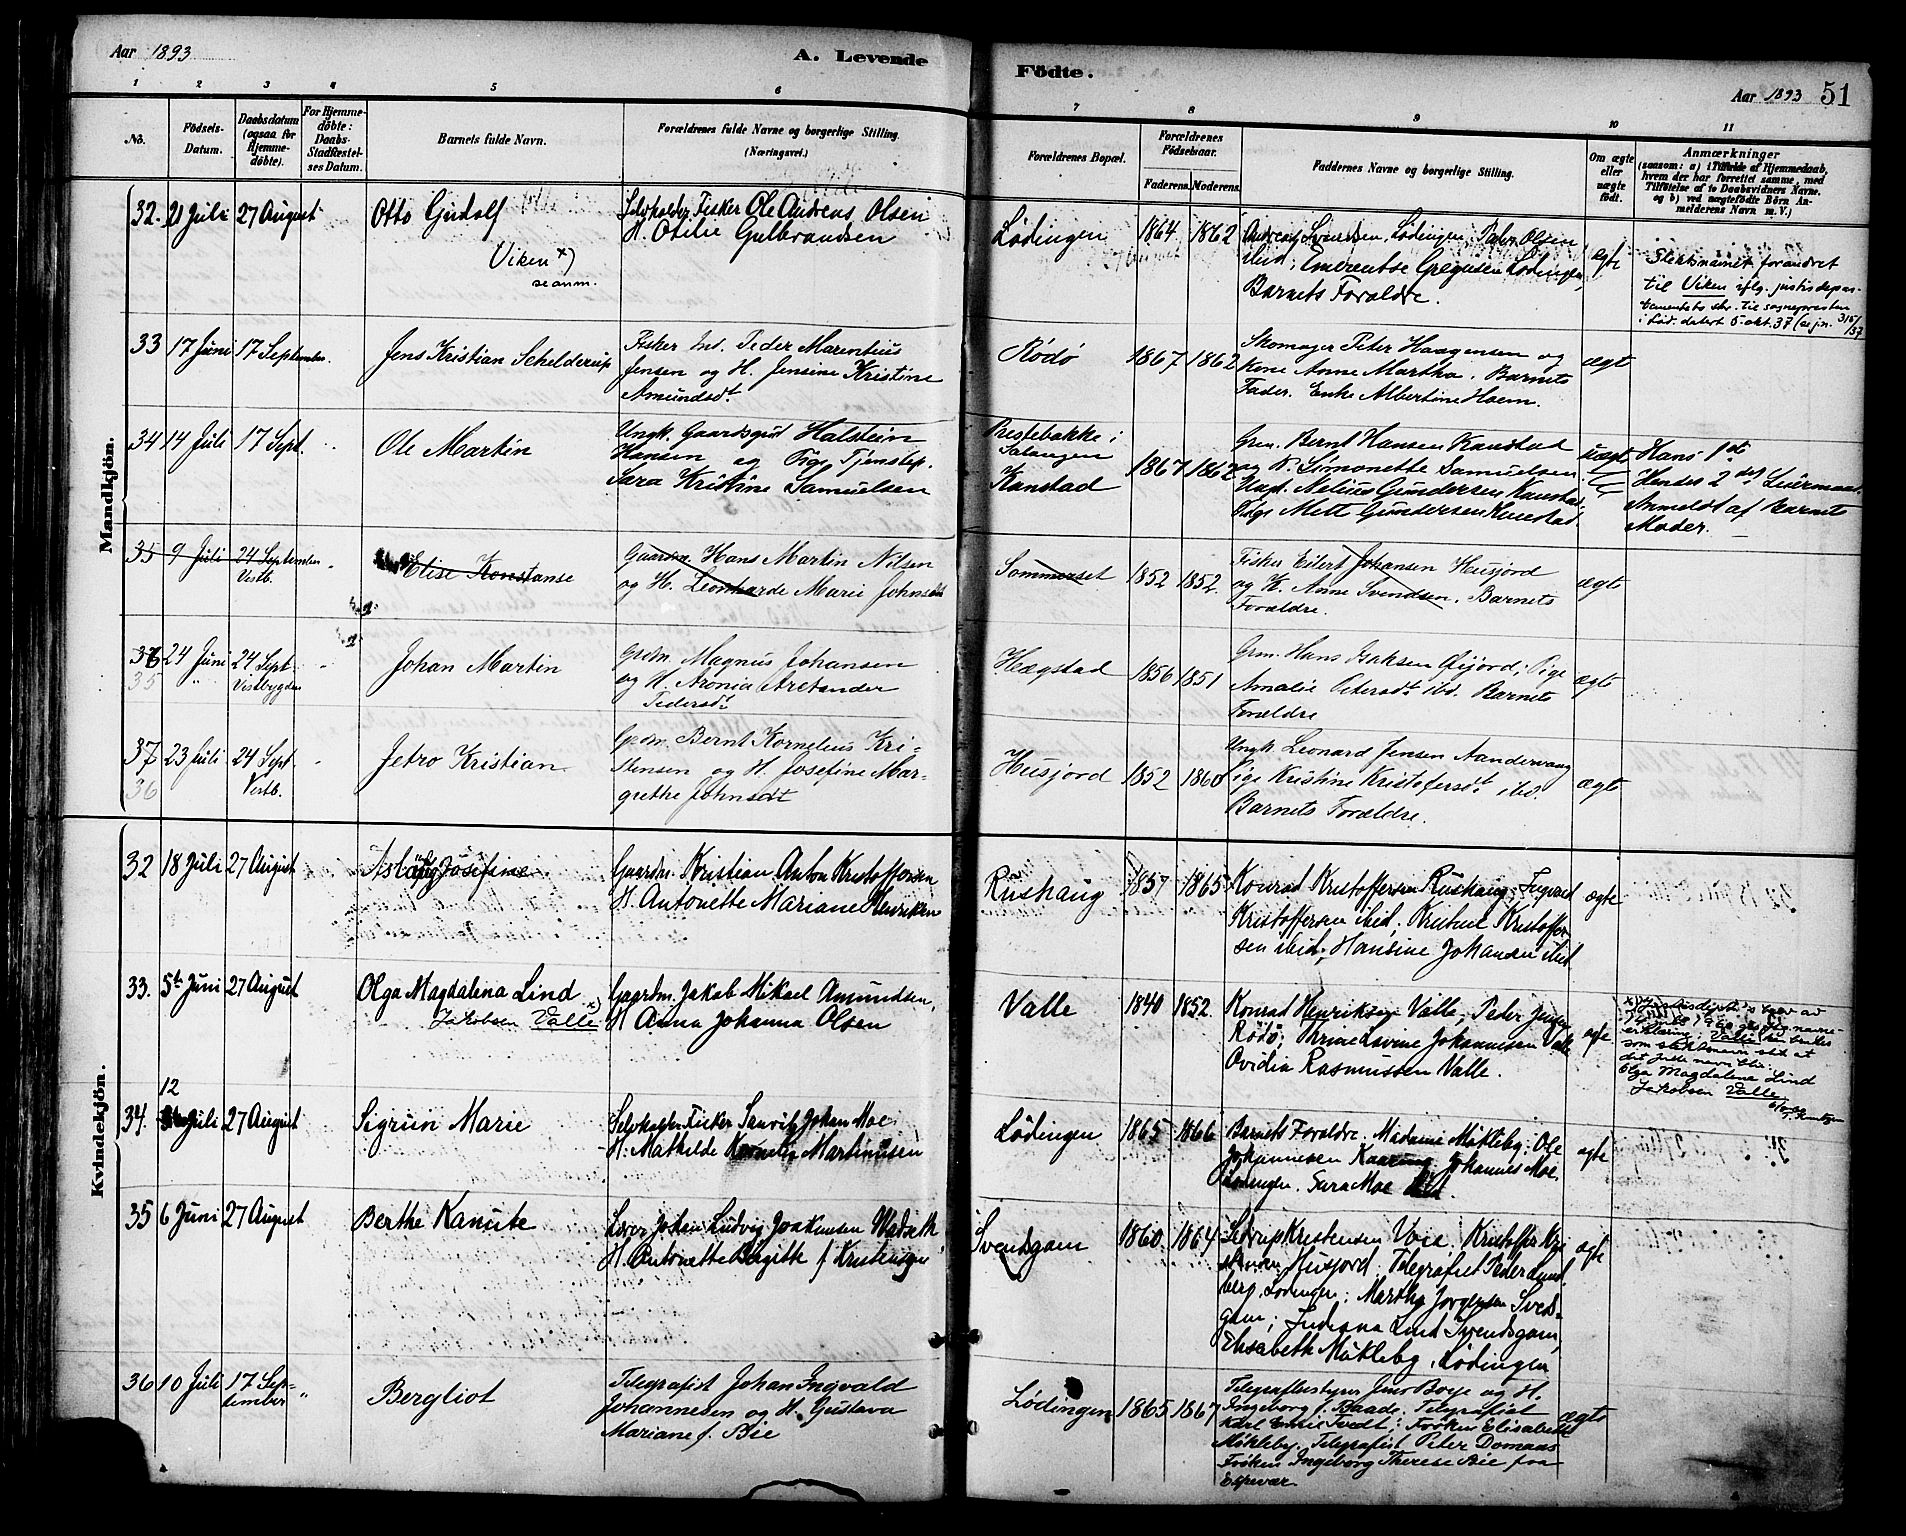 Aar 1893
A. Levende
Födte.
Aar 1893 51
1 2 3 4 5 6 7 8 9 10 11
No.
Födsels-
Datum.
Daabsdatum
(ogsaa for
Hjemme-
döbte).
For Hjemme-
döbte:
Daabs-
Stadfæstel-
ses Datum.
Barnets fulde Navn.
Forældrenes fulde Navne og borgerlige Stilling.
(Næringsvei.)
Forældrenes Bopæl.
Forældrenes
Födselsaar.
Faderens. Moderens.
Faddernes Navne og borgerlige Stilling.
Om ægte
eller
uægte
födt.
Anmærkninger
(saasom: a) i Tilfælde af Hjemmedaab,
hvem der har forrettet samme, med
Tilföielse af to Daabsvidners Navne,
og b) ved uægtefödte Börn An-
melderens Navn m. V.)
Mandkjön.
32. 21 Juli 27 August
Otto Gudolf
Viken x)
se anm.
Selvholder Fisker Ole Andreas Olsen
H. Otilie Gulbrandsen
Lødingen 1864 1862
Andreas Svendsen, Lødingen, Peder Olsen
ibid; Emerentse Gregusen Lødingen,
Barnets Forældre.
ægte
Slektsnavnet forandret
til Viken iflg. justisdepar-
tementets skr. til sognepresten
i Lød. datert 5. okt. 37 (se jn. 315/37
33 17 Juni 17 September
Jens Kristian Schelderup
Fisker Ind. Peder Marentius
Jensen og H. Jensine Kristine
Amundsdt
Rödö 1867 1862
Skomager Peter Haagensen og
Kone Anne Martha. Barnets
Fader. Enke Albertine Hoem.
ægte
34 14 Juli 17 Sept.
Ole Martin
Ungk. Gaardsgut Halstein
Hansen og Pige Tjenstep.
Sara Kristine Samuelsen
Prestebakke i
Salangen
Kanstad
1867 1862
Grm. Bernt Hansen Kanstad
og K. Simonette Samuelsen.
Ungk. Nelius Gundersen Kanstad.
Pige Mette Gundersen Kanstad
uægte
Hans 1ste
Hendes 2det Leiermaal.
Anmeldt af Barnets
Moder.
35 9 Juli 24 September
Vestb.
Elise Konstanse
Gaardm. Hans Martin Nilsen
og H. Leonharde Marie Johnsdt
Sommerset 1852 1852
Fisker Eilert Johansen Husjord
og K. Anne Svendsen. Barnets
Forældre.
ægte
36 24 Juni 24 Sept
35 Vestbygden
Johan Martin
Grdm. Magnus Johansen
og H. Aronia Aretander
Pedersdt
Hægstad 1856 1851
Grm. Hans Isaksen Øijord; Pige
Amalie Petersdt ibd. Barnets
Forældre
ægte
37 23 Juli 24 Sept
36 Vestb.
Jetro Kristian
Grdm. Bernt Kornelius Kri-
stensen og H. Josefine Mar-
grethe Johnsdt
Husjord 1852 1860
Ungk Leonard Jensen Aandervaag
Pige Kristine Kristofersdt ibd.
Barnets Forældre.
ægte
Kvindekjön.
32 18 Juli 27 August
Asbörg Josefine
Gaardm. Kristian Anton Kristoffersen
H. Antonette Mariane Henriksen
Rushaug 1857 1865
Konrad Kristoffersen Rushaug; Ingvard
Kristoffersen ibid; Kristine Kristoffer-
sen ibid; Hansine Johansen ibid
ægte
33. 5te Juni 27 August
Olga Magdalena Lind x)
Jakobsen Valle
Gaardm. Jakob Mikael Amundsen,
H. Anna Johanna Olsen
Valle 1840 1852.
Konrad Henriksen Valle; Peder Jensen
Rødø; Trine Lovine Johannesen Valle
Ovidia Rasmussen Valle.
ægte
x) Justisdept's brev av
1960 navne-
erklæring Valle kan brukes
som slektsnavn slik at
det fulle navn blir:
Olga Magdalene Lind
Jakobsen Valle
12
34. Juli 27 August
Sigrun Marie
Selvholder Fisker Sanvik Johan Moe
H. Mathilde Kornelia Martinusen
Lödingen 1865 1866
Barnets Forældre. Madame Mökleby. Ole
Johannesen Kaaringen. Johannes Moe
Lødingen. Sara Moe ibid.
ægte
35 6 Juni 27 August
Berthe Kanute
Lærer Johan Ludvig Joakimsen Wadseth
H. Antonette Birgitte f Kristensen
Svendsgam 1860 1864
Sedrup Kristensen Voie. Kristoffer Kri-
stensen Husjord. Telegrafist Peder Lund-
berg, Lødingen; Martha Jørgensen Svens-
gam; Indiana Lind Svendsgam,
Elisabeth Mökleby, Lödingen
ægte
36 10 Juli 17 Sep-
tember
Bergliot
Telegrafist Johan Ingvald
Johannesen og H. Gustava
Mariane f. Bie
Lødingen 1865 1867
Telegrafbestyrer Jens Boye og H.
Ingeborg f. Baade. Telegrafist
Karl Emil Tvedt; Frøken Elisabeth
Møkleby. Telegrafist Peter Domaas
Frøken Ingeborg Therese Bie fra
Espevær.
ægte